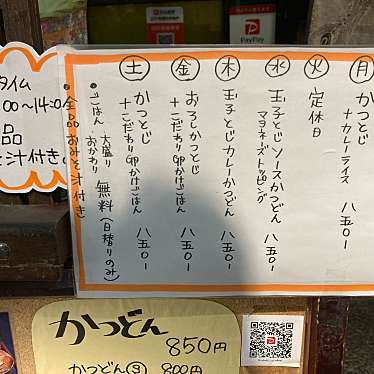 PayPay
月 かつとじ
+カレーライス 八五〇ー
火 定休日
水 玉子とじソースかつどん
マヨネーズトッピング 八五〇ー
木 玉子とじカレーかつどん 八五〇ー
金 おろしかつとじ
+こだわりGPかけごはん 八五〇ー
土 かつとじ
+こだわりGPかけごはん 八五〇ー
・ごはん 大盛り
おかわり 無料(日替りのみ)
・全品おみそ汁付き
タイム
:00〜14:0
品
汁付き
かつどん
850円
かつどん 800円